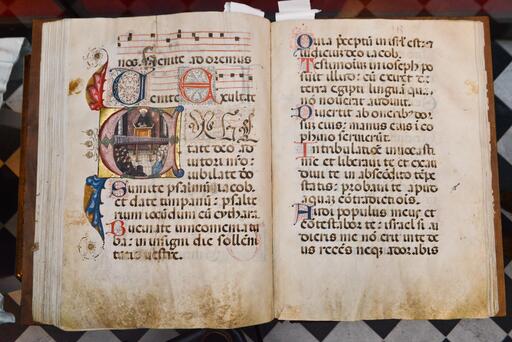 nos. Venite adoremus
Venite Exultat
EXUL
tate deo ad
iutori nro:
iubilate deo
Sumite psalmū iacob.
et date timpanū: psalte
rium iocūdum cū cythara.
Bucinate in neomenia tu
ba: in insigni die sollēni
tatis vestre.
Quia p̄ceptū in isrl est: ⁊
iudiciū deo iacob.
Testimoniū in ioseph po
suit illud: cū exiret de
terra egypti linguā quā
nō noverat audivit.
Divertit ab oneribꝰ dor
sū eiꝰ: manus eiꝰ i co
phino servierūt.
In tribulatiōe invocasti
me et liberavi te et exau
divi te in abscōdito tēpe
statis: probavi te apud
aquā contradictiōis.
Audi populus meus et
cōtestabor te: israel si au
dieris me nō erit inte de
us recēs neqꝫ adorabis